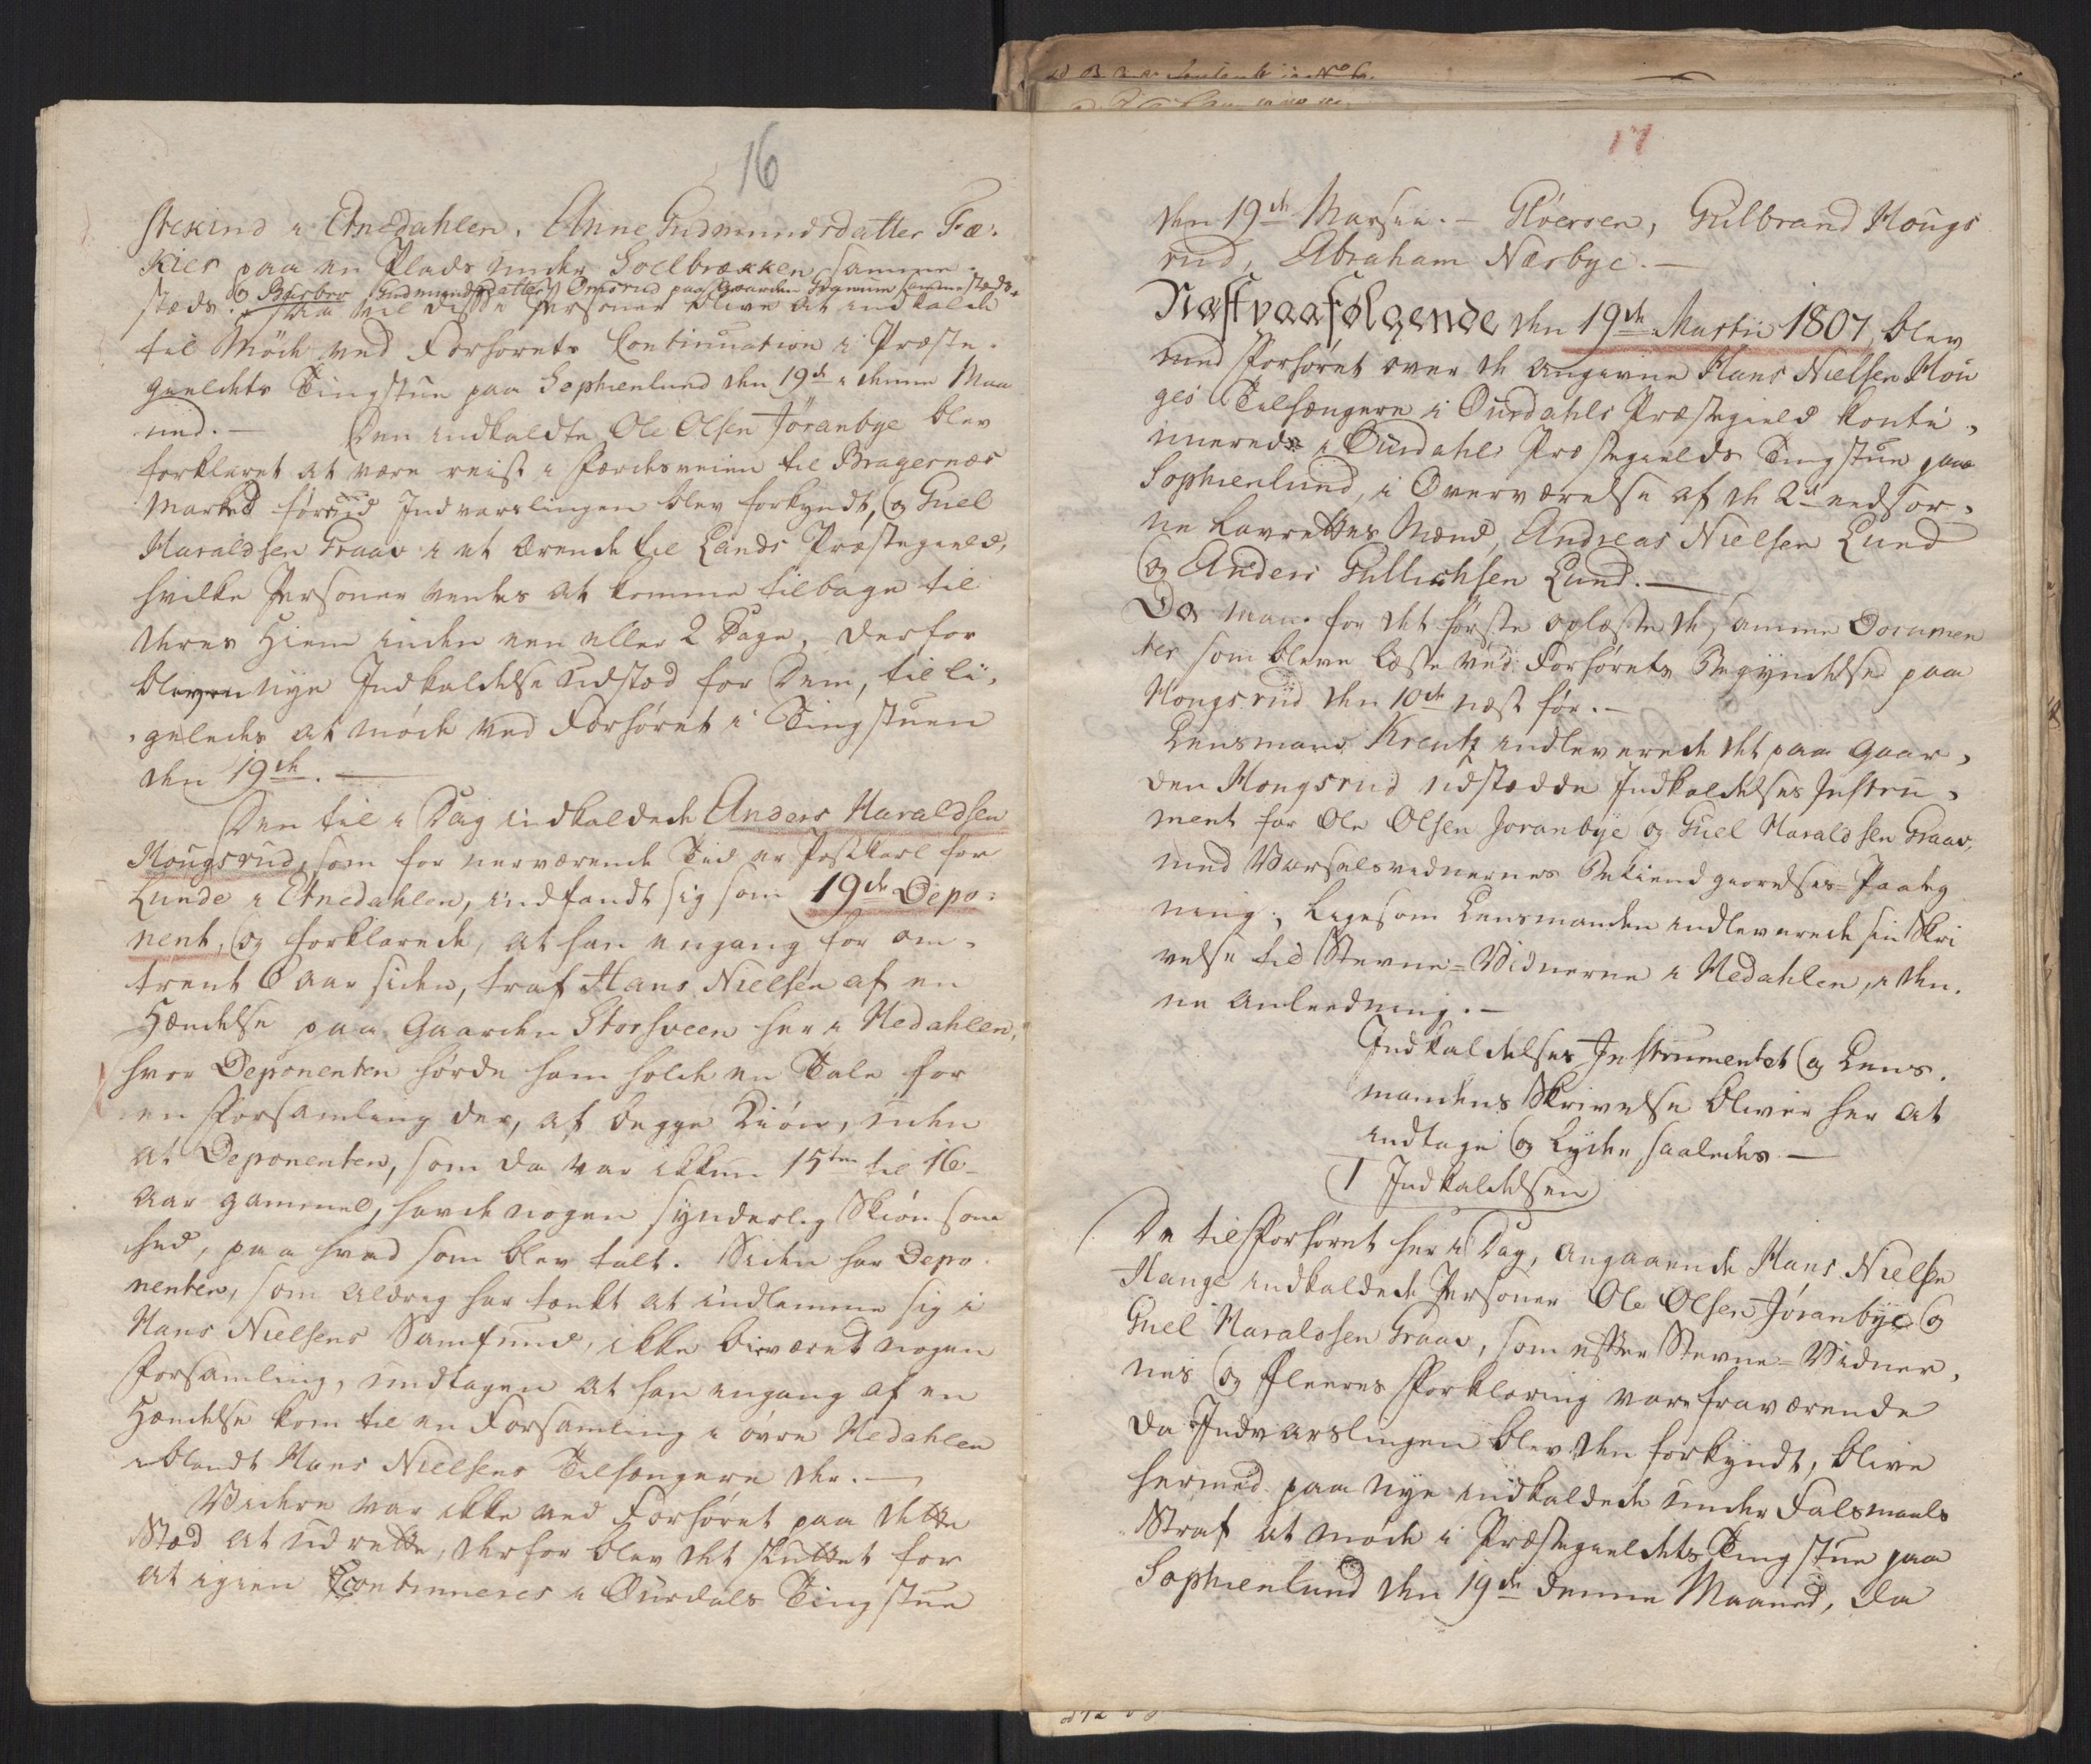 16
stekind i Etnedahlen, Anne Gudmundsdatter Fæ-
kier paa en Plads under Soelbrækken samme-
og Barbro Gudmundsdatter Omsrud paa Gaarden samme stæds.
stæds. Saa vil disse Personer blive at indkalde
til Møde ved Forhørets Continuation i Præste-
gieldets Tingstue paa Sophienlund den 19de i denne Maa
ned. — Den indkaldte Ole Olsen Jøranbye blev
forklaret at være reist i Færdesveien til Bragernæs
Marked førend Indvarslingen blev forkyndt, og Guel
Haraldsen Graav i et Ærende til Lands Præstegield,
hvilke Personer ventes at komme tilbage til
deres Hiem inden een eller 2 Dage, derfor
bliver nye Indkaldelse udstæd for Dem, til li-
geledes at møde ved Forhøret i Tingstuen
den 19de. —
Den til i Dag indkaldede Anders Haraldsen
Hougsrud, som for nærværende Tid er Postkarl for
Lunde i Etnedahlen, indfandt sig som 19de Depo-
nent, og forklarede, at han engang for om-
trent 6 aar siden, traf Hans Nielsen af en
Hændelse paa Gaarden Storsveen her i Hedahlen,
hvor Deponenten hørde ham holde en Tale for
en Forsamling der, af begge Kiøn, uden
at Deponenten, som da var ikkun 15ten til 16-
Aar gammel, havde nogen synderlig Skiønsom
hed, paa hvad som blev talt. Siden har Depo-
nenten, som aldrig har tænkt at indlemme sig i
Hans Nielsens Samfund, ikke biværet nogen
Forsamling, undtagen at han engang af en
Hændelse kom til en Forsamling i øvre Hedahlen
iblandt Hans Nielsens Tilhængere der. —
Videre var ikke ved Forhøret paa dette
Stæd at udrette, derfor blev det sluttet for
at igien Continueres i Ourdals Tingstue
17
den 19de Martii. — Gløersen, Gulbrand Hougs
rud, Abraham Næsbye. —
Næstpaafølgende den 19de Martii 1807, blev
med Forhøret over de angivne Hans Nielsen Hou
ges Tilhængere i Ourdahls Præstegield konti-
nueredt i Ourdahls Præstegields Tingstue paa
Sophienlund, i Overværelse af de 2de eedsor-
ne Lavrettes Mænd, Andreas Nielsen Lund
og Anders Gullichsen Lund. —
Da man for det første oplæste de samme Documen
ter som bleve læste ved Forhørets Begyndelse paa
Hongsrud den 10de næst før. —
Lensmand Kreutz indleverede det paa Gaar-
den Hongsrud udstædde Indkaldelses Instru-
ment for Ole Olsen Joranbye og Guel Haraldsen Graav,
med Varselsvidnernes Bekiendgiørelses-Paateg
ning; ligesom Lensmanden indleverede sin Skri
velse til Stevne-Vidnerne i Hedahlen, i den-
ne Anleedning. —
Indkaldelses Instrumentet og Lens-
mandens Skrivelse bliver her at
indtage og lyder saaledes. —
1 Indkaldelsen
De til Forhøret her i Dag, angaaende Hans Nielsen
Hauge indkaldede Personer Ole Olsen Jøranbye og
Guel Haraldsen Graav, som efter Stevne-Vidner-
nes og Fleeres Forklaring vare fraværende
da Indvarslingen blev den forkyndt, blive
hermed paa nye indkaldede under Falsmaals
Straf at møde i Præstegieldets Tingstue paa
Sophienlund den 19de denne Maaned, da